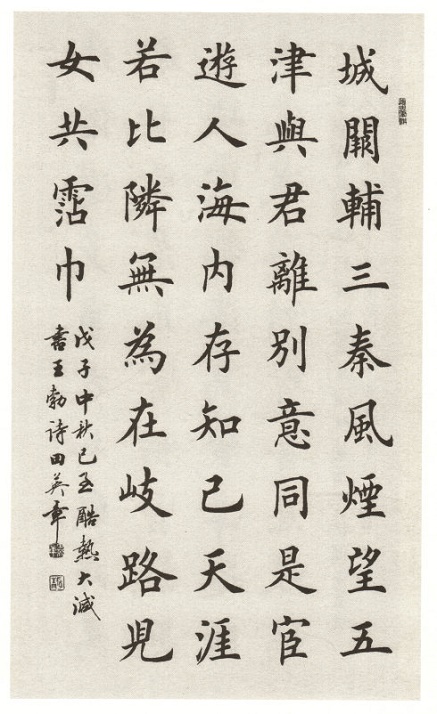 城闕輔三秦風煙望五
津與君離別意同是宦
遊人海內存知己天涯
若比隣無為在岐路兒
女共霑巾
戊子中秋已至酷熱大減
書王勃詩田英章